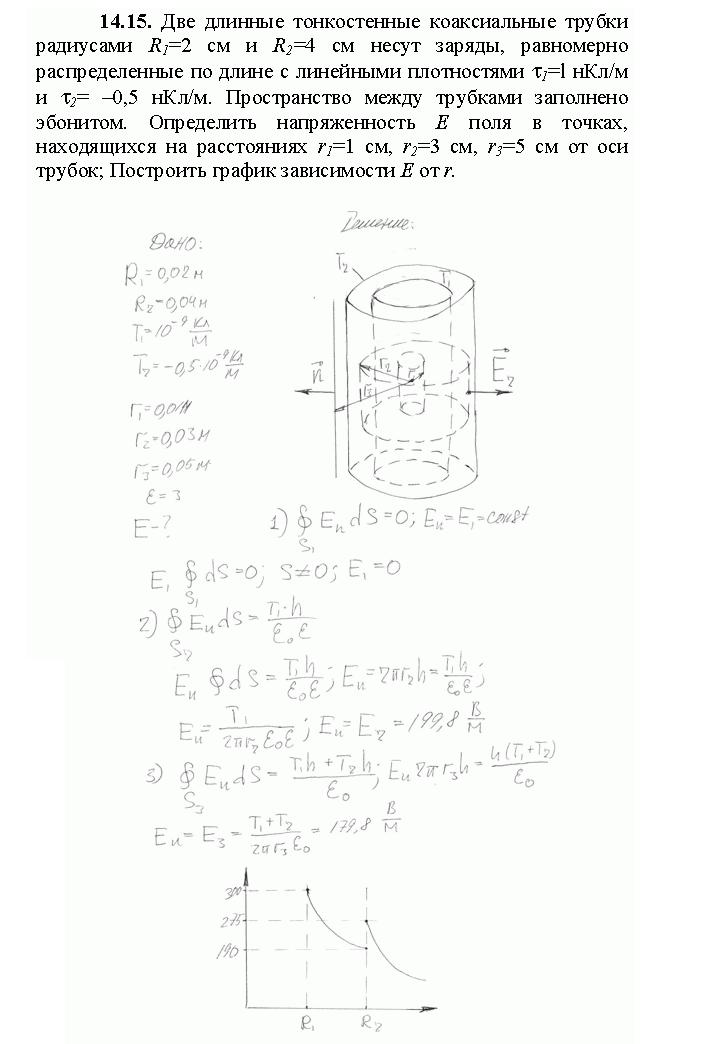 14.15. Две длинные тонкостенные коаксиальные трубки
радиусами R1=2 см и R2=4 см несут заряды, равномерно
распределенные по длине с линейными плотностями τ1=l нКл/м
и τ2= –0,5 нКл/м. Пространство между трубками заполнено
эбонитом. Определить напряженность E поля в точках,
находящихся на расстояниях r1=1 см, r2=3 см, r3=5 см от оси
трубок; Построить график зависимости E от r.
Решение:
Дано:
R1=0,02м
R2=0,04м
T1=10^-9 Кл/м
T2=-0,5·10^-9 Кл/м
r1=0,01м
r2=0,03м
r3=0,05м
ε=3
E-?
T2
T1
n
r2
r1
r3
E2
1) ∮S1 En dS=0; En=E1=const
E1 ∮S1 dS=0; S≠0; E1=0
2) ∮S2 En dS= T1·h/ε0ε
En ∮dS= T1h/ε0ε; En=2πr2h= T1h/ε0ε;
En= T1/2πr2ε0ε; En=E2=199,8 В/м
3) ∮S3 En dS= T1h+T2h/ε0; En2πr3h= h(T1+T2)/ε0
En=E3= T1+T2/2πr3ε0 = 179,8 В/м
300
275
190
R1 R2